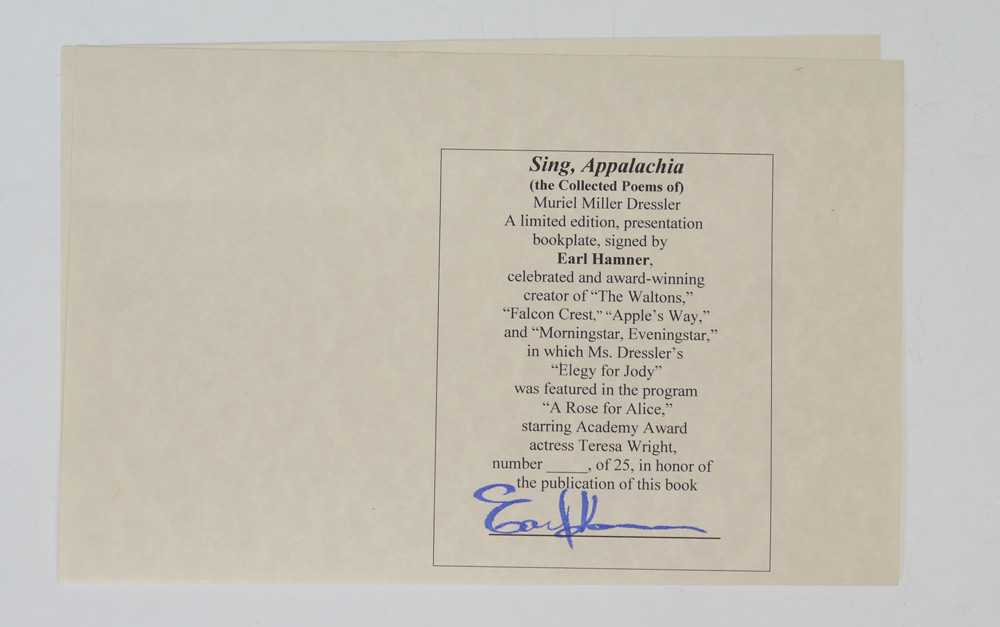 Sing, Appalachia
(the Collected Poems of)
Muriel Miller Dressler
A limited edition, presentation
bookplate, signed by
Earl Hamner,
celebrated and award-winning
creator of “The Waltons,”
“Falcon Crest,” “Apple’s Way,”
and “Morningstar, Eveningstar,”
in which Ms. Dressler’s
“Elegy for Jody”
was featured in the program
“A Rose for Alice,”
starring Academy Award
actress Teresa Wright,
number _____, of 25, in honor of
the publication of this book
Earl Hamner